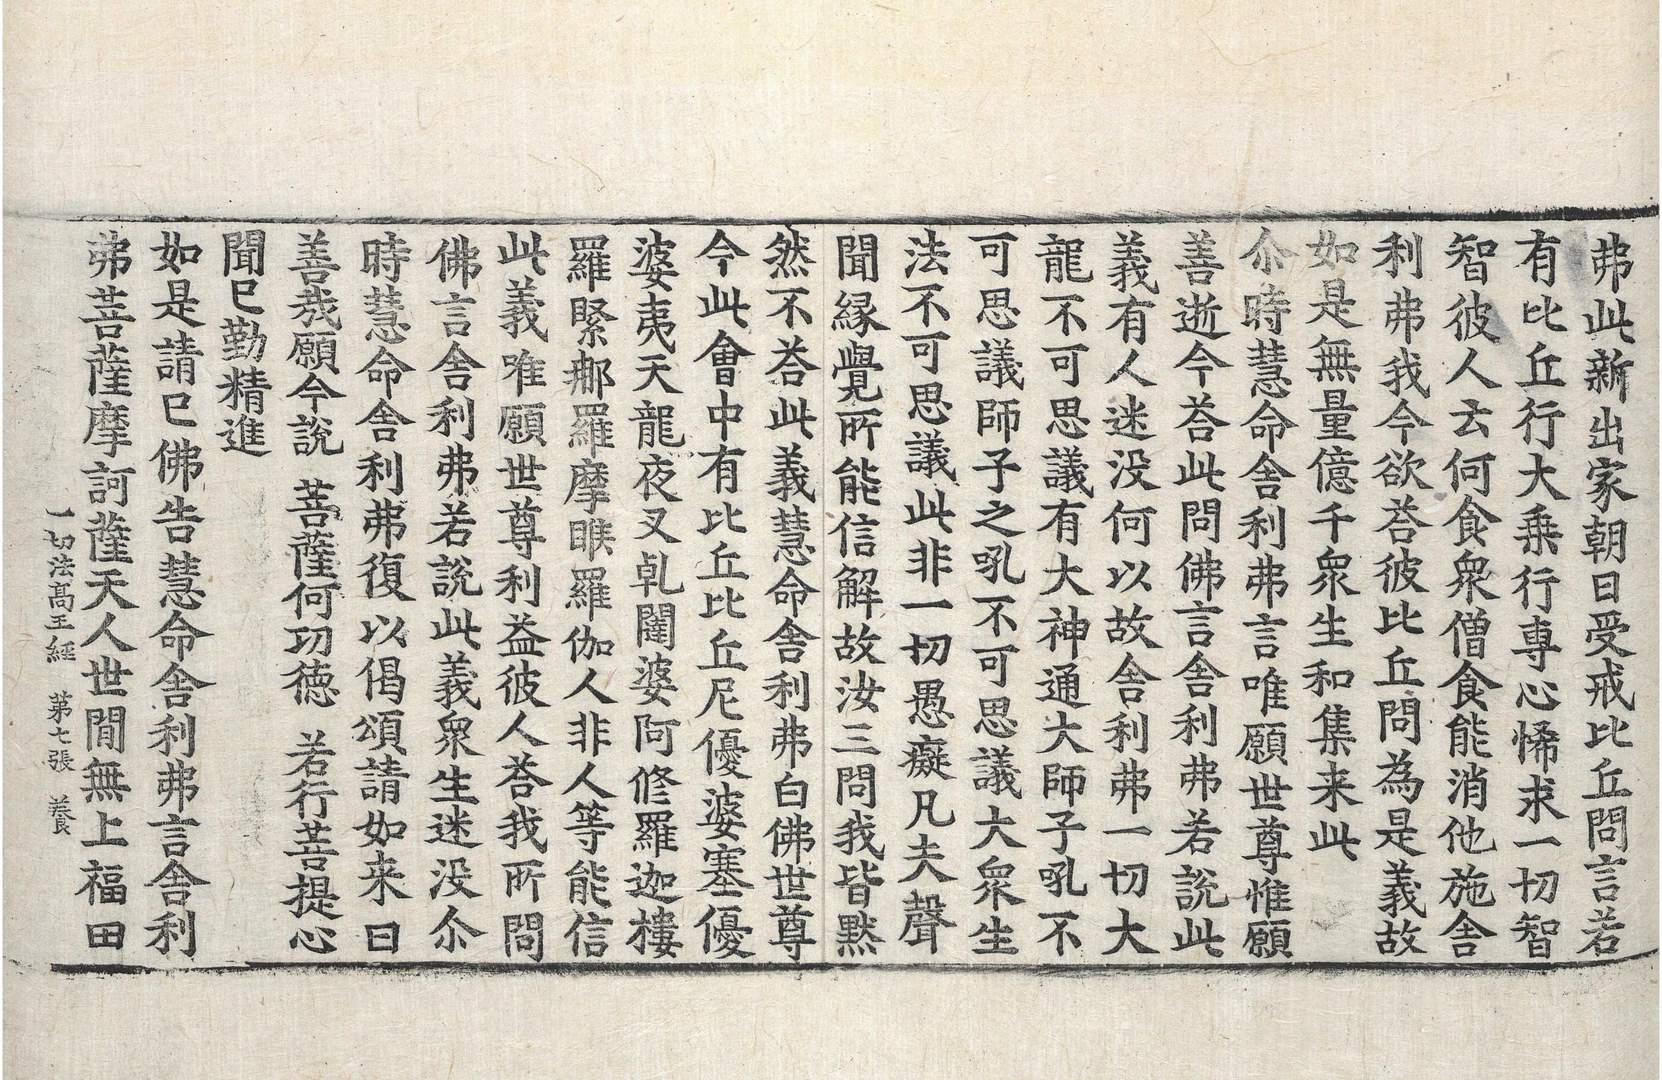 弗此新出家朝日受戒比丘問言若
有比丘行大乗行専心悕求一切智
智彼人云何食衆僧食能消他施舎
利弗我今欲荅彼比丘問為是義故
如是無量億千衆生和集来此
尒時慧命舎利弗言唯願世尊惟願
善逝今荅此問佛言舎利弗若説此
義有人迷没何以故舎利弗一切大
龍不可思議有大神通大師子吼不
可思議師子之吼不可思議大衆生
法不可思議此非一切愚癡凡夫聲
聞縁覺所能信解故汝三問我皆黙
然不荅此義慧命舎利弗白佛世尊
今此會中有比丘比丘尼優婆塞優
婆夷天龍夜叉乹闥婆阿修羅迦樓
羅緊那羅摩睺羅伽人非人等能信
此義唯願世尊利益彼人荅我所問
佛言舎利弗若説此義衆生迷没尒
時慧命舎利弗復以偈頌請如来曰
善哉願今説　菩薩何功徳　若行菩提心
聞已勤精進
如是請已佛告慧命舎利弗言舎利
弗菩薩摩訶薩天人世間無上福田
一切法髙王經　第七張　養